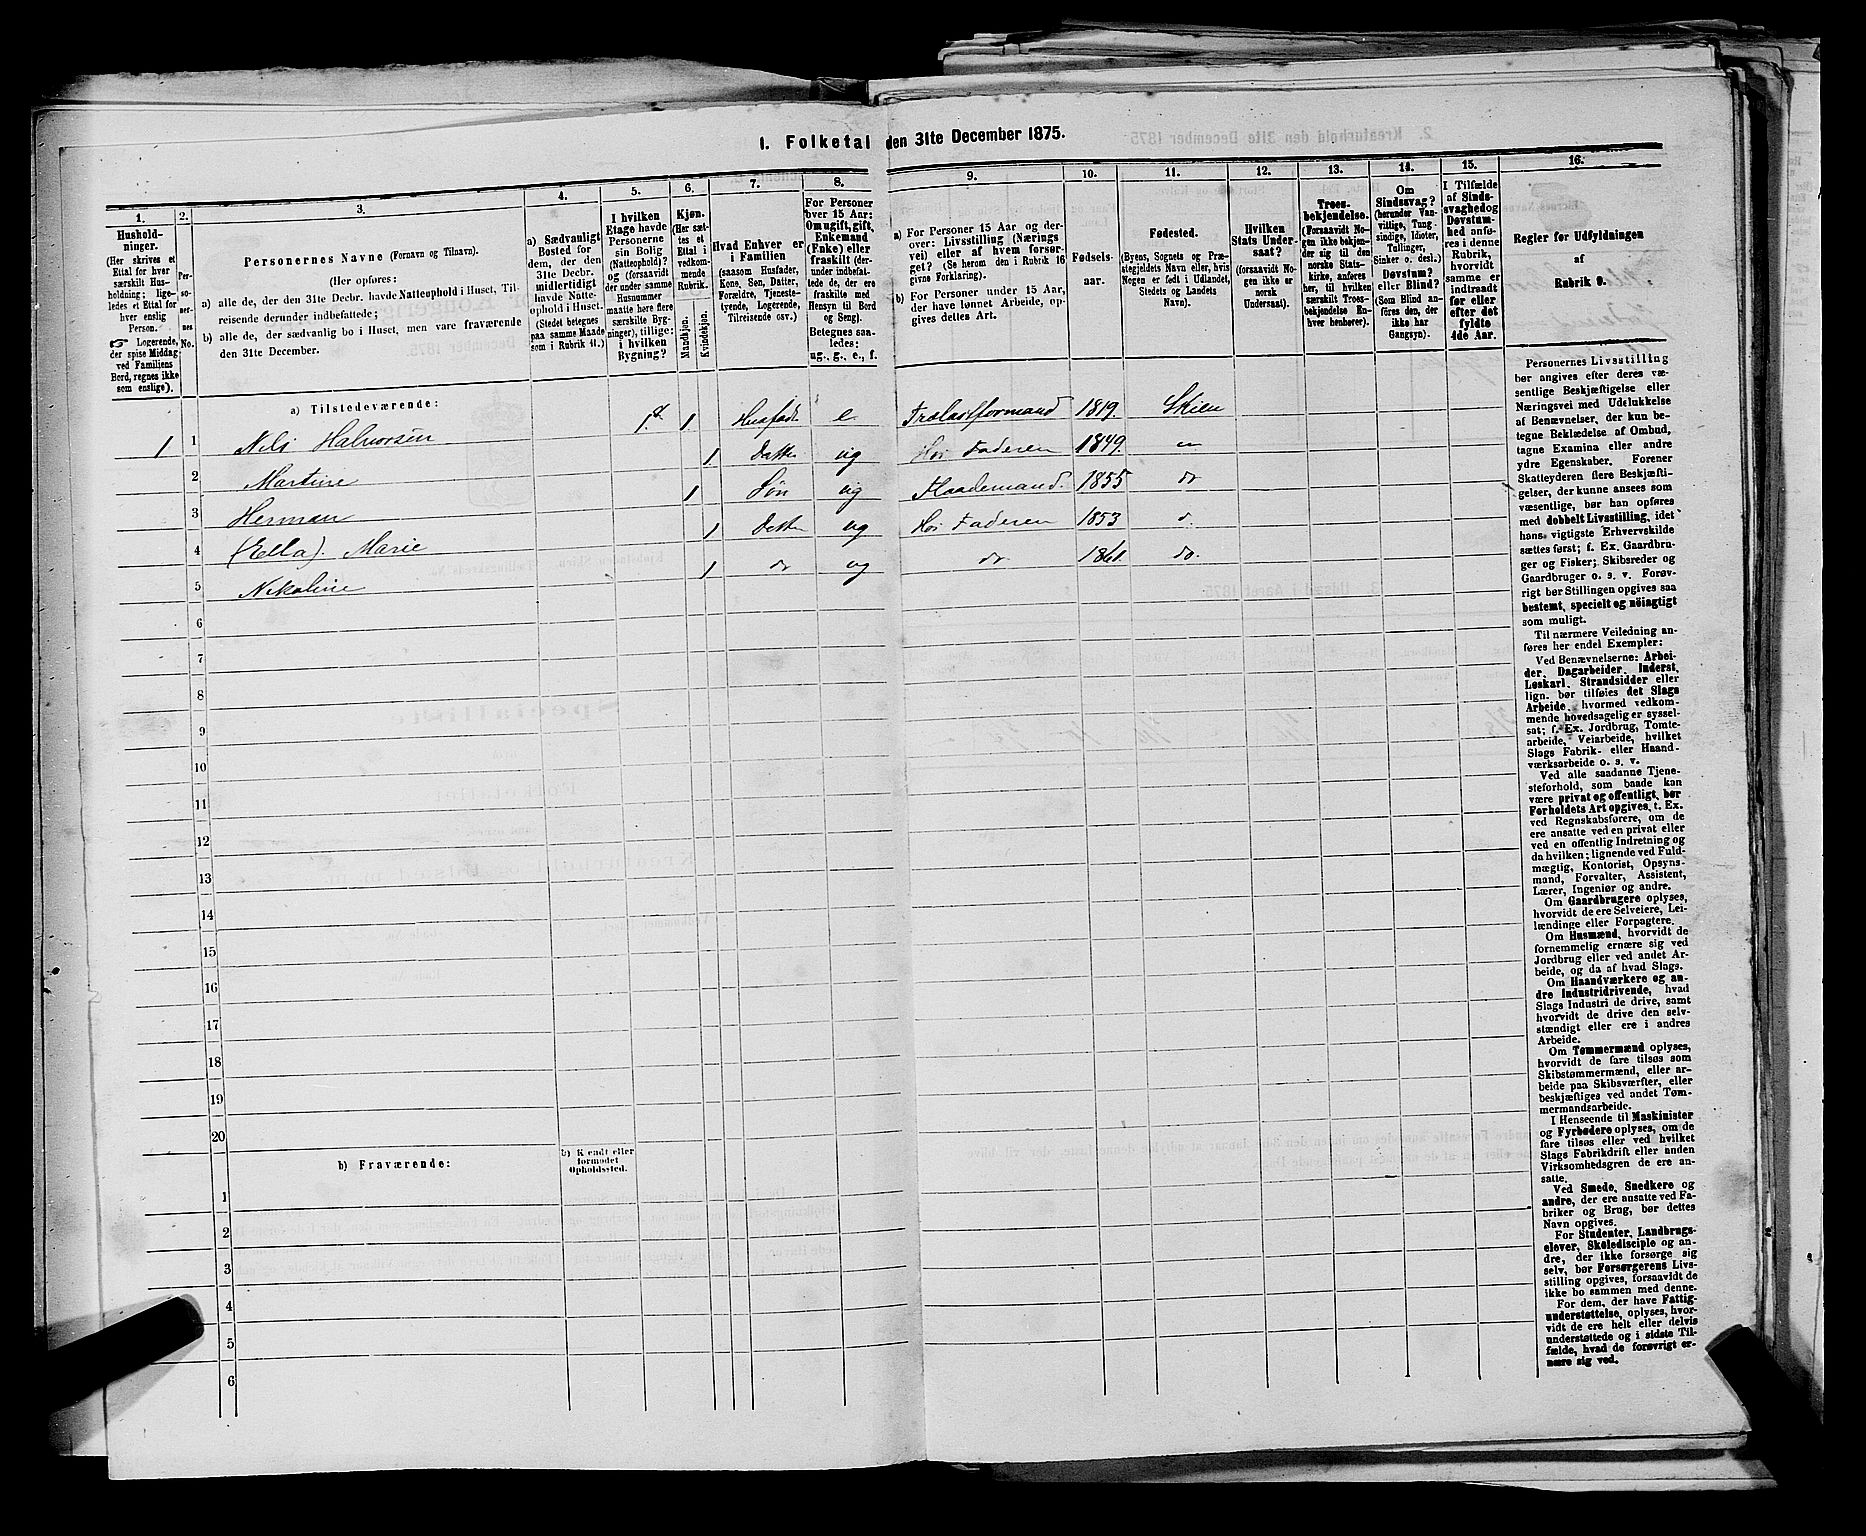 1. Folketal den 31te December 1875.
1.
Hushold-
ninger.
(Her skrives et
Ettal for hver
særskilt Hus-
holdning; lige-
ledes et Ettal for
hver enslig
Person.
☞ Logerende,
der spise Middag
ved Familiens
Bord, regnes ikke
som enslige).
2.
Per-
so-
ner-
nes
No.
3.
Personernes Navne (Fornavn og Tilnavn).
(Her opføres:
a) alle de, der den 31te Decbr. havde Natteophold i Huset, Til-
reisende derunder indbefattede;
b) alle de, der sædvanlig bo i Huset, men vare fraværende
den 31te December.
4.
a) Sædvanligt
Bosted for
dem, der den
31te Decbr.
midlertidigt
havde Natte-
ophold i Huset.
(Stedet betegnes
paa samme Maade
som i Rubrik 11.)
5.
I hvilken
Etage havde
Personerne
sin Bolig
(Natteophold)?
og (forsaavidt
der under samme
Husnummer
maatte høre flere
særskilte Byg-
ninger), tillige:
i hvilken
Bygning?
6.
Kjøn.
(Her sæt-
tes et
Ettal i
vedkom-
mende
Rubrik.
Mandkjøn.
Kvindekjøn.
7.
Hvad Enhver er
i Familien
(saasom Husfader,
Kone, Søn, Datter,
Forældre, Tjeneste-
tyende, Logerende,
Tilreisende osv.)
8.
For Personer
over 15 Aar:
Om ugift, gift,
Enkemand
(Enke) eller
fraskilt (der-
under indbefat-
tede de, der ere
fraskilte med
Hensyn til Bord
og Seng).
Betegnes saa-
ledes:
ug., g., e., f.
9.
a) For Personer 15 Aar og der-
over: Livsstilling (Nærings
vei) eller af hvem forsør-
get? (Se herom den i Rubrik 16
givne Forklaring).
b) For Personer under 15 Aar,
der have lønnet Arbeide, op-
gives dettes Art.
10.
Fødsels-
aar.
11.
Fødested.
(Byens, Sognets og Præ-
stegjeldets Navn eller, hvis
Nogen er født i Udlandet,
Stedets og Landets
Navn).
12.
Hvilken
Stats Under-
saat?
(forsaavidt No-
gen ikke er
norsk
Undersaat).
13.
Troes-
bekjendelse.
(Forsaavidt No-
gen ikke bekjen-
der sig til den
norske Stats-
kirke, anføres
her, til hvilket
særskilt Troes-
bekjendelse En-
hver henhører).
14.
Om
Sindssvag?
(herunder Van-
vittige, Tung-
sindige, Idioter,
Tullinger,
Sinker o. desl.)
Døvstum?
eller Blind?
(Som Blind an-
føres den, der
ikke har
Gangsyn).
15.
I Tilfælde
af Sinds-
svaghed og
Døvstum-
hed anfø-
res i denne
Rubrik,
hvorvidt
samme er
indtraadt
før eller
efter det
fyldte
4de Aar.
16.
Regler for Udfyldningen
af
Rubrik 9.
a) Tilstedeværende:
1 1 Nils Halvorsen 1. 1 Husfader e Trælastformand 1819. Skien
2 Martine 1 Datter ug Hos Faderen 1849.
3 Herman 1 Søn ug Flaademand. 1855 do
4 (Ella). Marie 1 Datter ug Hos Faderen 1853 d.
5 Nikoline 1 do ug do 1861. do.
6
7
8
9
10
11
12
13
14
15
16
17
18
19
20
b) Fraværende:
b) Kjendt eller
formodet
Opholdssted.
1
2
3
4
5
6
Personernes Livsstilling
bør angives efter deres væ-
sentlige Beskjæftigelse eller
Næringsvei med Udelukkelse
af Benævnelser, der kun be-
tegne Beklædelse af Ombud,
tagne Examina eller andre
ydre Egenskaber. Forener
Skatteyderen flere Beskjæfti-
gelser, der kunne ansees som
væsentlige, bør han opføres
med dobbelt Livsstilling, idet
hans vigtigste Erhvervskilde
sættes først; f. Ex. Gaardbru-
ger og Fisker; Skibsreder og
Gaardbruger o. s. v. Forøv-
rigt bør Stillingen opgives saa
bestemt, specielt og nöiagtigt
som muligt.
Til nærmere Veiledning an-
føres her endel Exempler:
Ved Benævnelserne: Arbei-
der, Dagarbeider, Inderst,
Løskarl, Strandsidder eller
lign. bør tilføies det Slags
Arbeide, hvormed vedkom-
mende hovedsagelig er syssel-
sat; f. Ex. Jordbrug, Tomte-
arbeide, Veiarbeide, hvilket
Slags Fabrik- eller Haand-
værksarbeide o. s. v.
Ved alle saadanne Tjene-
steforhold, som baade kan
være privat og offentligt, bør
Forholdets Art opgives, t. Ex.
ved Regnskabsførere, om de
ere ansatte ved en privat eller
ved en offentlig Indretning og
da hvilken; lignende ved Fuld-
mægtig, Kontorist, Opsyns-
mand, Forvalter, Assistent,
Lærer, Ingeniør og andre.
Om Gaardbrugere oplyses,
hvorvidt de ere Selveiere, Lei-
lændinge eller Forpagtere.
Om Husmænd, hvorvidt de
fornemmelig ernære sig ved
Jordbrug eller ved andet Ar-
beide, og da af hvad Slags.
Om Haandværkere og an-
dre Industridrivende, hvad
Slags Industri de drive, samt
hvorvidt de drive den selv-
stændigt eller ere i andres
Arbeide.
Om Tømmermænd oplyses,
hvorvidt de fare tilsøs som
Skibstømmermænd, eller ar-
beide paa Skibsværfter, eller
beskjæftiges ved andet Tøm-
mermandsarbeide.
I Henseende til Maskinister
og Fyrbødere oplyses, om de
fare tilsøs eller ved hvilket
Slags Fabrikdrift eller anden
Virksomhedsgren de ere an-
satte.
Ved Smede, Snedkere og
andre, der ere ansatte ved Fa-
briker og Brug, bør dettes
Navn opgives.
For Studenter, Landbrugs-
elever, Skoledisciple og an-
dre, der ikke forsørge sig
selv, bør Forsørgerens Livs-
stilling opgives, forsaavidt de
ikke bo sammen med denne.
For dem, der have Fattig-
understøttelse, oplyses, hvor-
vidt de ere helt eller delvis
understøttede og i sidste Til-
fælde, hvad de forøvrigt er-
nære sig ved.